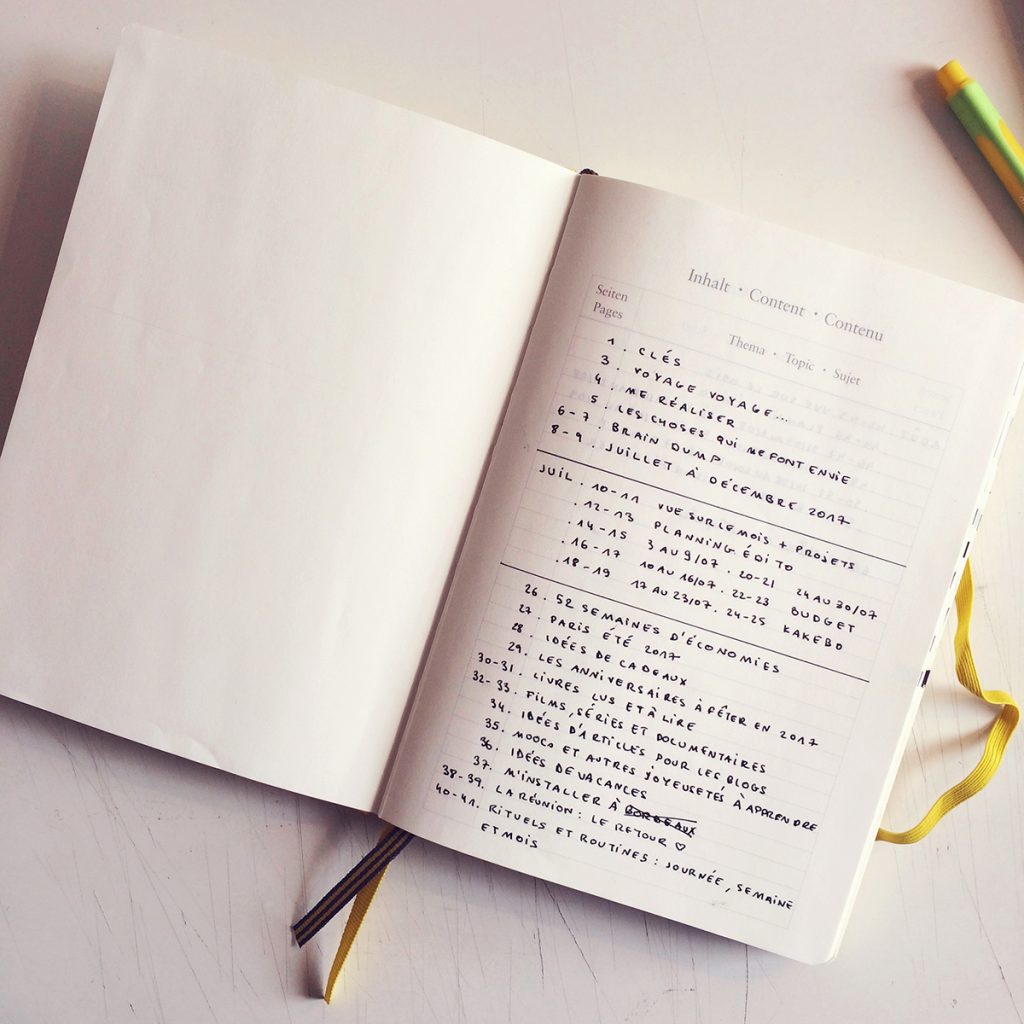 Inhalt • Content • Contenu
Seiten
Pages
Thema • Topic • Sujet
1. CLÉS
3. VOYAGE VOYAGE...
4. ME RÉALISER
5. LES CHOSES QUI ME FONT ENVIE
6-7. BRAIN DUMP
8-9. JUILLET À DÉCEMBRE 2017
JUIL. 10-11 VUE SUR LE MOIS + PROJETS
.12-13 PLANNING ÉDITO
.14-15 3 AU 9/07 . 20-21 24 AU 30/07
.16-17 10 AU 16/07 . 22-23 BUDGET
.18-19 17 AU 23/07 . 24-25 KAKEBO
26. 52 SEMAINES D'ÉCONOMIES
27. PARIS ÉTÉ 2017
28. IDÉES DE CADEAUX
29. LES ANNIVERSAIRES À FÊTER EN 2017
30-31. LIVRES LUS ET À LIRE
32-33. FILMS, SÉRIES ET DOCUMENTAIRES
34. IDÉES D'ARTICLES POUR LES BLOGS
35. MOOCS ET AUTRES JOYEUSETÉS À APPRENDRE
36. IDÉES DE VACANCES
37. M'INSTALLER À BORDEAUX
38-39. LA RÉUNION : LE RETOUR ♡
40-41. RITUELS ET ROUTINES : JOURNÉE, SEMAINE
ET MOIS